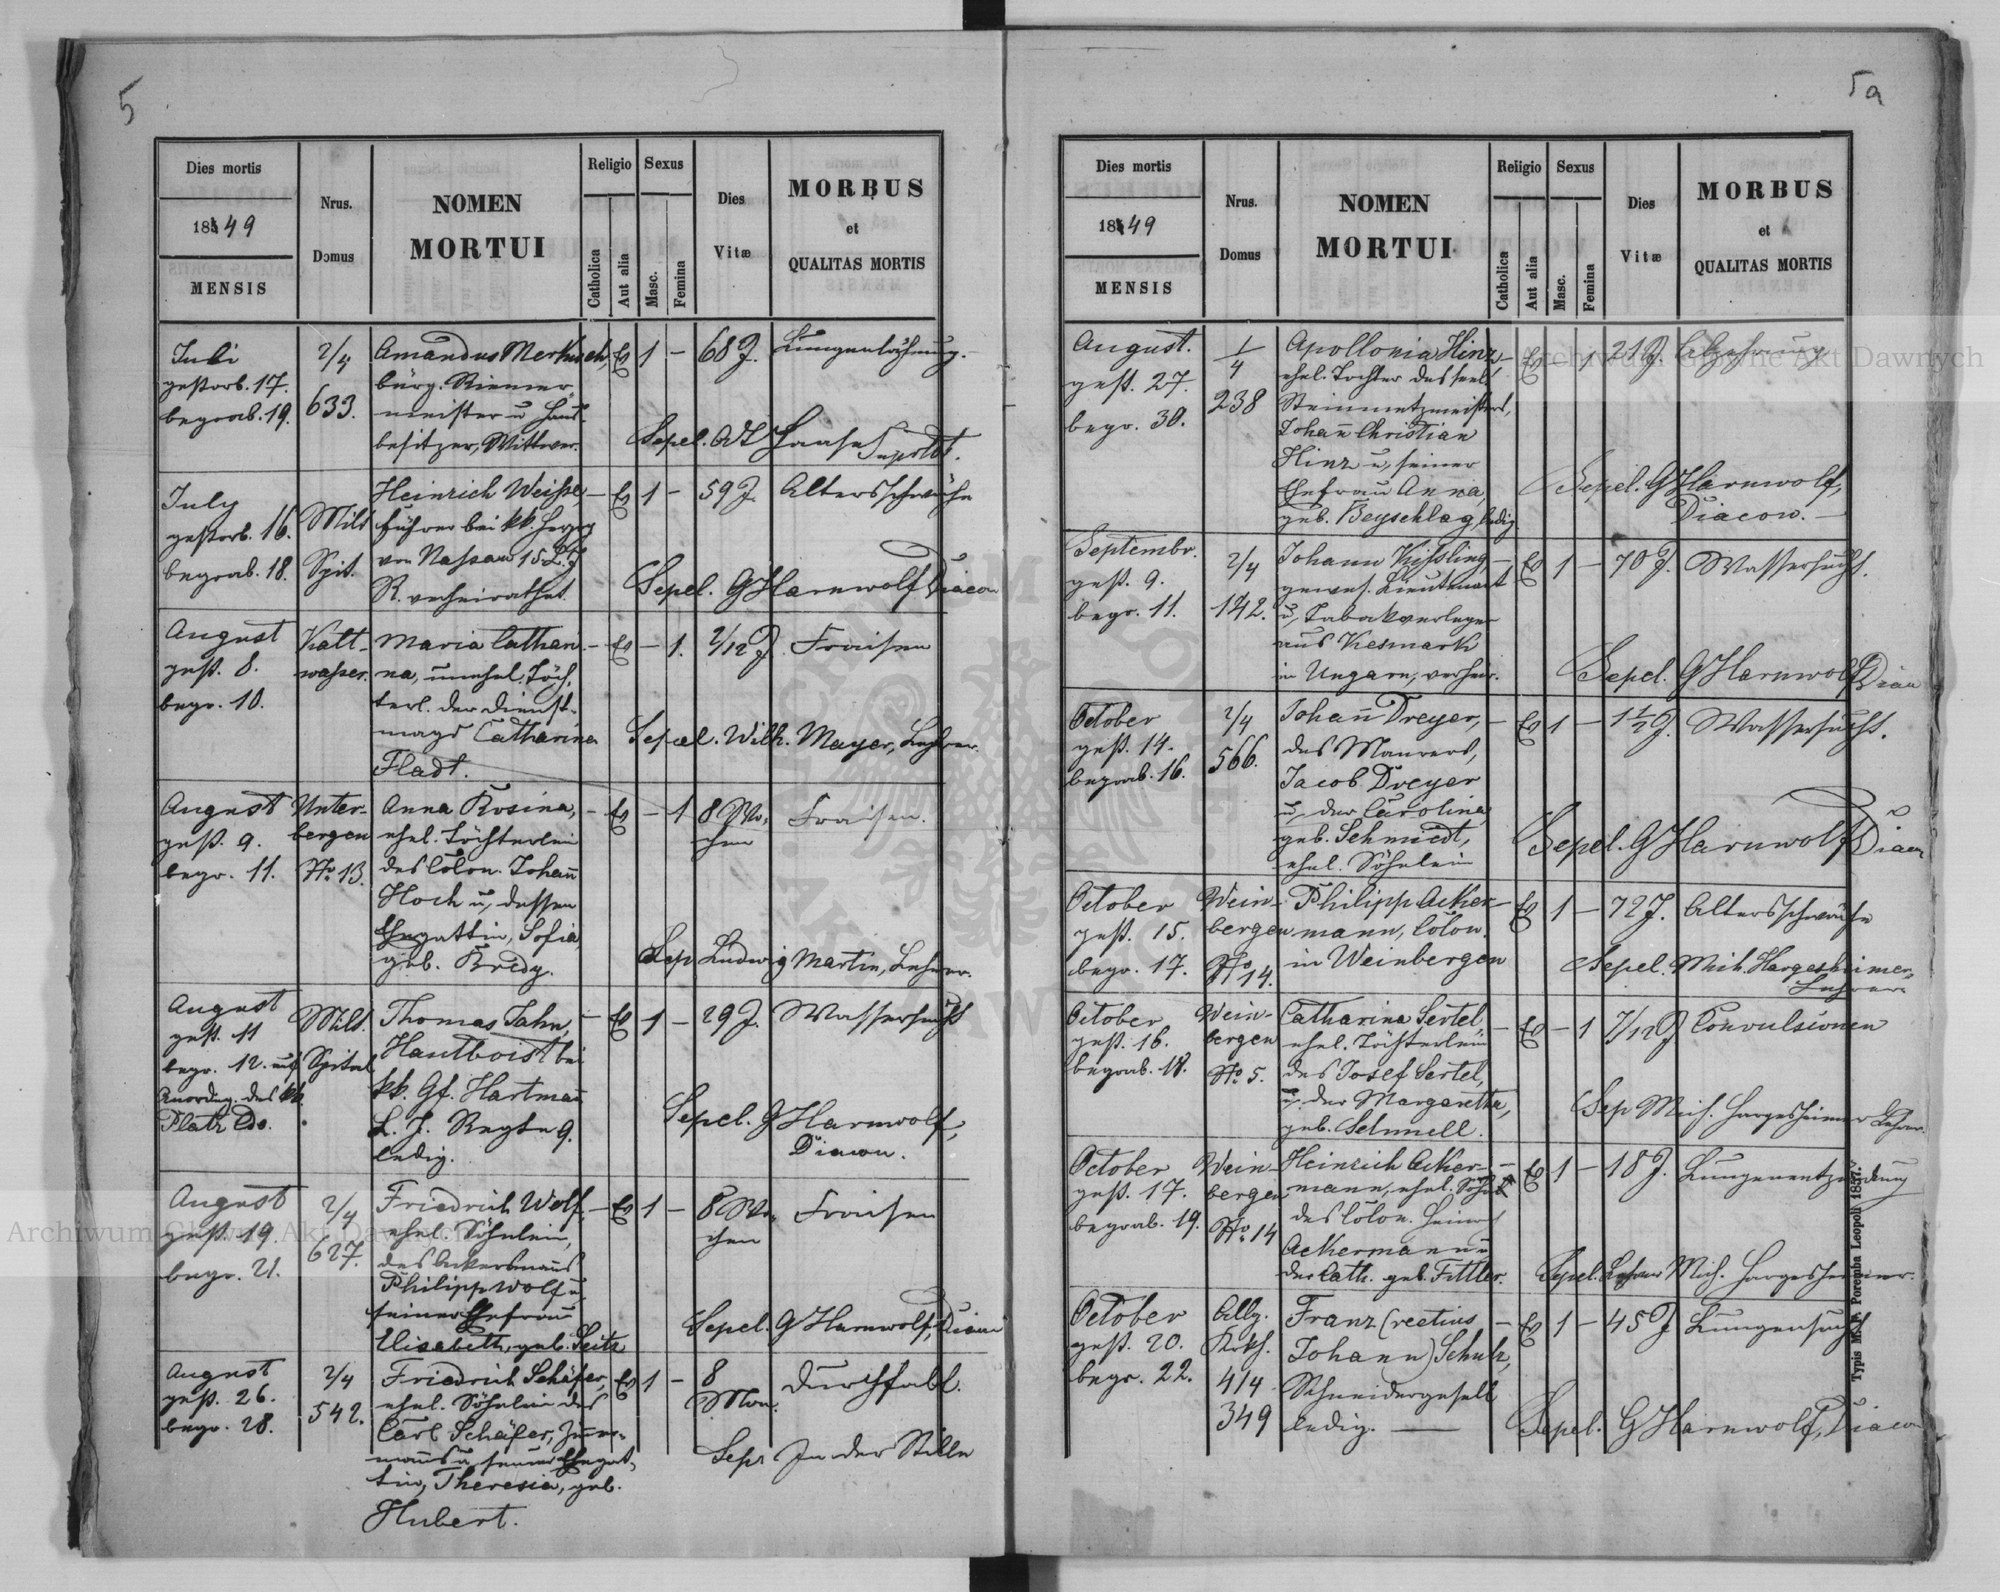 5
Dies mortis
1849
MENSIS
Nrus.
Domus
NOMEN
MORTUI
Religio
Catholica
Aut alia
Sexus
Masc.
Femina
Dies
Vitæ
MORBUS
et
QUALITAS MORTIS
Juli
gestorb. 17.
begrab. 19.
2/4
633.
Amandus Merkusch,
bürg. Riemer
meister u Haus-
besitzer, Wittwer.
Ev 1 – 68 J. Lungenlähmung.
Sepel. Haase Suprdt.
July
gestorb. 16.
begrab. 18.
Milt
Spit.
Heinrich Weiße,
Führer bei kk. Herzog
von Nassau 15 L. I.
R. verheirathet.
– Ev 1 – 59 J. Altersschwäche
Sepel. G Harnwolf Diacon
August
gest. 8.
begr. 10.
Kalt-
wasser.
Maria Cathari-
na, unehel. Töch-
terl. der Dienst-
magd Catharina
Fladt.
– Ev – 1. 2/12 J. Fraisen
Sepel. Wilh. Mayer, Lehrer.
August
gest. 9.
begr. 11.
Unter-
bergen
No. 13.
Anna Rosina,
ehel. Töchterlein
des Colon. Johann
Hoch u, dessen
Ehegattin, Sofia,
geb. Bredy.
– Ev – 1 8 Wo-
chen
Fraisen.
Sep Ludwig Martin, Lehrer.
August
gest. 11
begr. 12. auf
Anordng. des kk.
Platz Co.
Milt.
Spital
Thomas Jahn,
Hautboist bei
kk. Gf. Hartmann
L. I. Regte 9.
ledig.
– Ev 1 – 29 J. Wassersucht
Sepel. G Harnwolf,
Diacon.
August
gest. 19.
begr. 21.
2/4
627.
Friedrich Wolf,
ehel. Söhnlein,
des Ackersmanns
Philipp Wolf u
seiner Ehefrau
Elisabeth, geb. Seitz
– Ev 1 – 8 Wo-
chen
Fraisen
Sepel. G Harnwolf, Diacon
August
gest. 26.
begr. 28.
2/4
542.
Friedrich Schäfer,
ehel. Söhnlein des
Carl Schäfer, Zimmer-
manns u, seiner Ehegat-
tin, Theresia, geb.
Hubert.
Ev 1 – 8
Mon.
Durchfall.
Sep. In der Stille
5a
Dies mortis
1849
MENSIS
Nrus.
Domus
NOMEN
MORTUI
Religio
Catholica
Aut alia
Sexus
Masc.
Femina
Dies
Vitæ
MORBUS
et
QUALITAS MORTIS
August.
gest. 27.
begr. 30.
1/4
238
Apollonia Hinz,
ehel. Tochter des seel.
Steinmetzmeisters,
Johann Christian
Hinz u, seiner
Ehefrau Anna,
geb. Beyschlag, ledig
– Ev – 1 21 J. Abzehrung
Sepel. G Harnwolf,
Diacon. –
Septembr.
gest. 9.
begr. 11.
2/4
142.
Johann Kissling,
gewes. Lieutenant
u, Tabakverleger
aus Kesmark
in Ungarn, verheir.
– Ev 1 – 70 J. Wassersucht.
Sepel. G Harnwolf Diacon
October
gest. 14.
begrab. 16.
2/4
566.
Johann Dreyer,
des Maurers,
Jacob Dreyer
u, der Carolina
geb. Schmiedt,
ehel. Söhnlein
– Ev 1 – 1 1/2 J. Wassersucht.
Sepel. G Harnwolf Diacon
October
gest. 15.
begr. 17.
Wein-
bergen
No 14.
Philipp Acker-
mann, Colon.
in Weinbergen
– Ev 1 – 72 J. Altersschwäche
Sepel. Mich. Hargesheimer,
Lehrer
October
gest. 16.
begrab. 18.
Wein-
bergen
No. 5.
Catharina Sertel
ehel. Töchterlein
des Josef Sertel,
u, der Margaretha,
geb. Schnell.
– Ev – 1 7/12 J Convulsionen
Sep Mich. Hargesheimer Lehrer.
October
gest. 17.
begrab. 19.
Wein-
bergen
No. 14
Heinrich Acker-
mann, ehel. Sohn
des Colon. Heinrich
Ackermann u
der Cath. geb. Fittler.
– Ev 1 – 18 J. Lungenentzündung
Sepel. Lehrer Mich. Hargesheimer.
October
gest. 20.
begr. 22.
Allg.
Krkh.
414
349
Franz (rectius
Johann) Schulz,
Schneidergesell
ledig. —
– Ev 1 – 45 J Lungensucht
Sepel. G Harnwolf, Diacon
Typis M. F. Poremba Leopoli 1857.
Archiwum Główne Akt Dawnych
Archiwum Główne Akt Dawnych